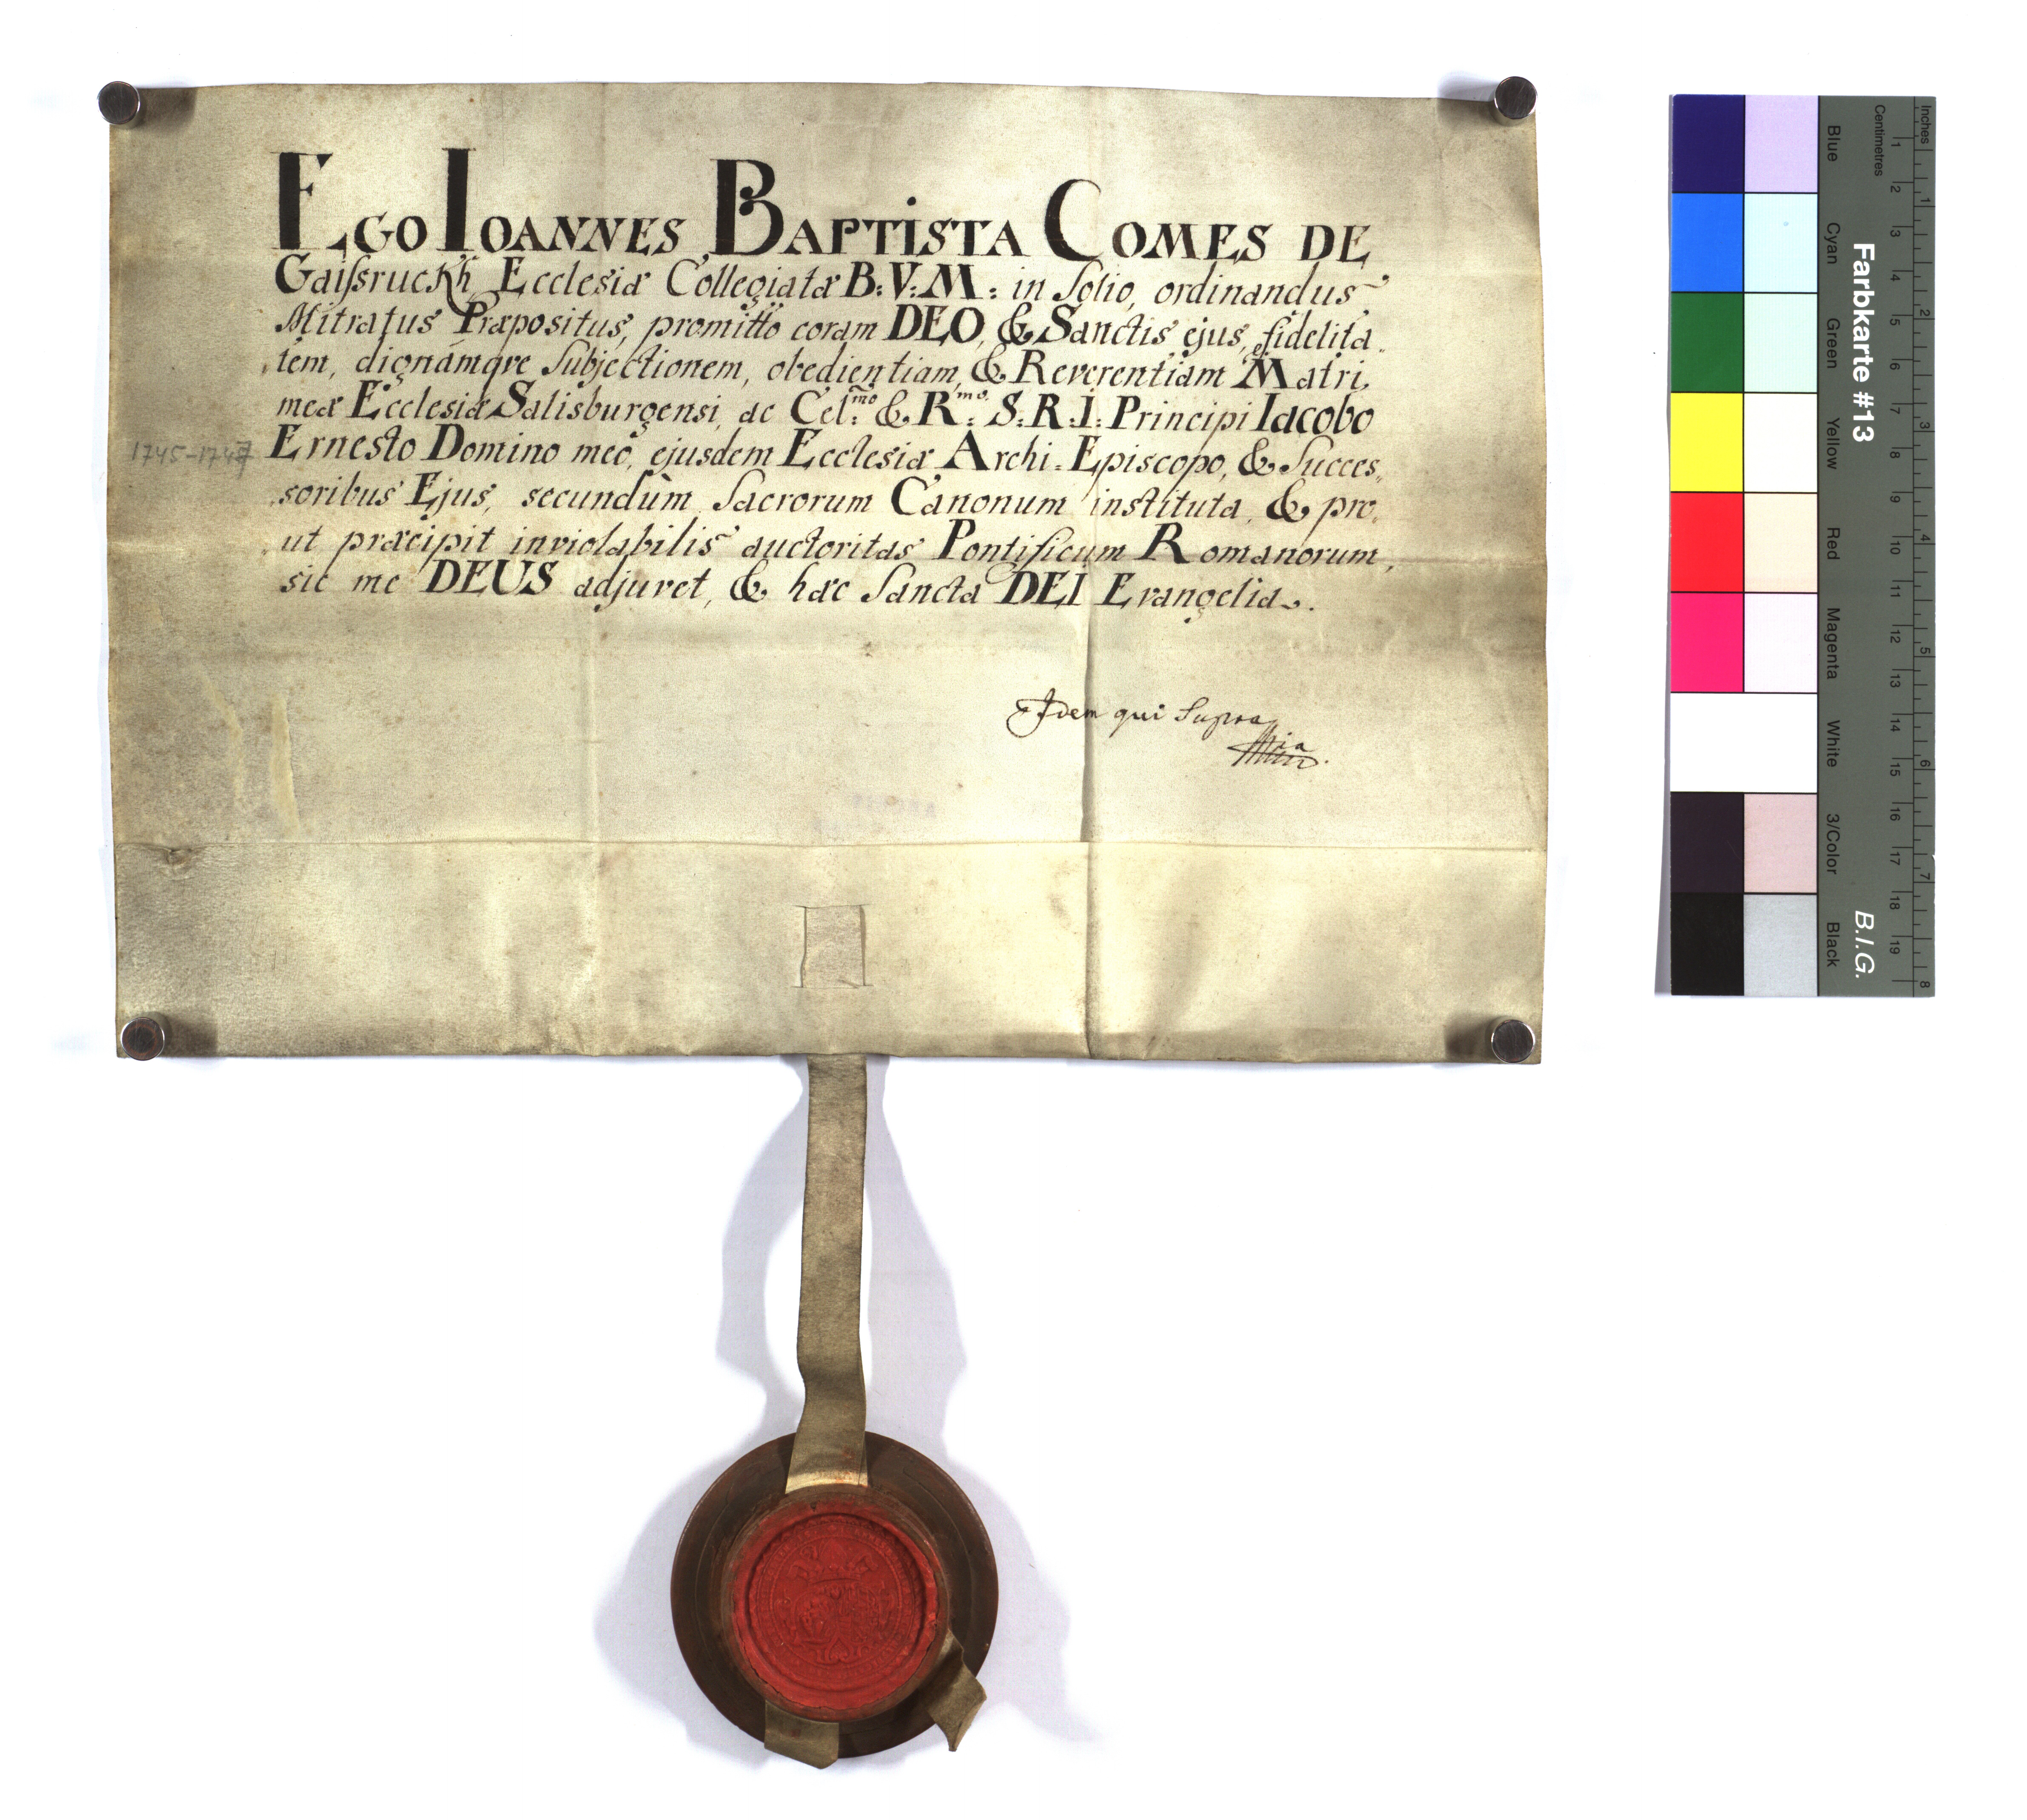 EGO IOANNES BAPTISTA COMES DE
Gaissruckh Ecclesiæ Collegiatæ B: V: M: in Solio, ordinandus
Mitratus Præpositus, promitto coram DEO, & Sanctis ejus, fidelita„
tem, dignámqve Subjectionem, obedientiam, & Reverentiam Matri
meæ Ecclesiæ Salisburgensi, ac Cel:mo & R:mo S: R: I: Principi Iacobo
Ernesto Domino meo, ejusdem Ecclesiæ Archi-Episcopo, & Succes„
soribus Ejus, secundùm Sacrorum Canonum instituta, & pro„
ut præcipit inviolabilis auctoritas Pontificum Romanorum,
sic me DEUS adjuvet, & hæc Sancta DEI Evangelia.
1745-1747
Idem qui Supra
Farbkarte #13
B.I.G.
Inches
Centimetres
1 2 3 4 5 6 7 8
1 2 3 4 5 6 7 8 9 10 11 12 13 14 15 16 17 18 19
Blue
Cyan
Green
Yellow
Red
Magenta
White
3/Color
Black